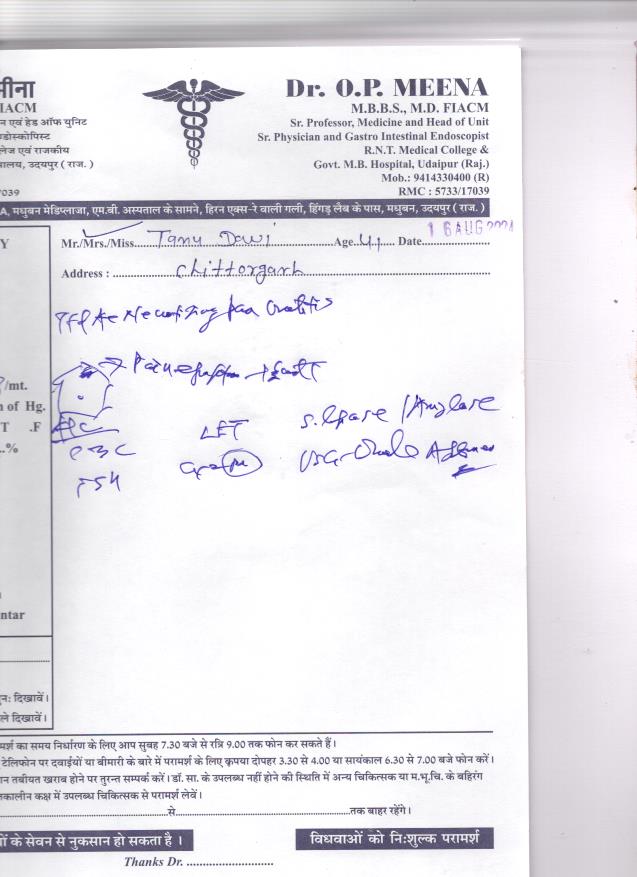 मीना
Dr. O.P. MEENA
FIACM
M.B.B.S., M.D. FIACM
न एवं हेड ऑफ युनिट
Sr. Professor, Medicine and Head of Unit
डोस्कोपिस्ट
Sr. Physician and Gastro Intestinal Endoscopist
लेज एवं राजकीय
R.N.T. Medical College &
पालय, उदयपुर ( राज. )
Govt. M.B. Hospital, Udaipur (Raj.)
Mob.: 9414330400 (R)
7039
RMC : 5733/17039
A, मधुबन मेडिप्लाजा, एम.बी. अस्पताल के सामने, हिरन एक्स-रे वाली गली, हिंगड़ लैब के पास, मधुबन, उदयपुर ( राज. )
Y
Mr./Mrs./Miss. Tanu Devi Age 41 Date 16 AUG 2021
Address : Chittorgarh
/mt.
n of Hg.
T .F
..%
LFT S. lipase / Amylase
CBC USG-Whole Abdomen
TSH
ntar
नः दिखावें।
ले दिखावें।
मर्श का समय निर्धारण के लिए आप सुबह 7.30 बजे से रात्रि 9.00 तक फोन कर सकते हैं।
टेलिफोन पर दवाईयों या बीमारी के बारे में परामर्श के लिए कृपया दोपहर 3.30 से 4.00 या सायंकाल 6.30 से 7.00 बजे फोन करें।
ान तबीयत खराब होने पर तुरन्त सम्पर्क करें। डॉ. सा. के उपलब्ध नहीं होने की स्थिति में अन्य चिकित्सक या म.भू.चि. के बहिरंग
तकालीन कक्ष में उपलब्ध चिकित्सक से परामर्श लेवें।
से तक बाहर रहेंगे।
ों के सेवन से नुकसान हो सकता है ।
विधवाओं को निःशुल्क परामर्श
Thanks Dr.